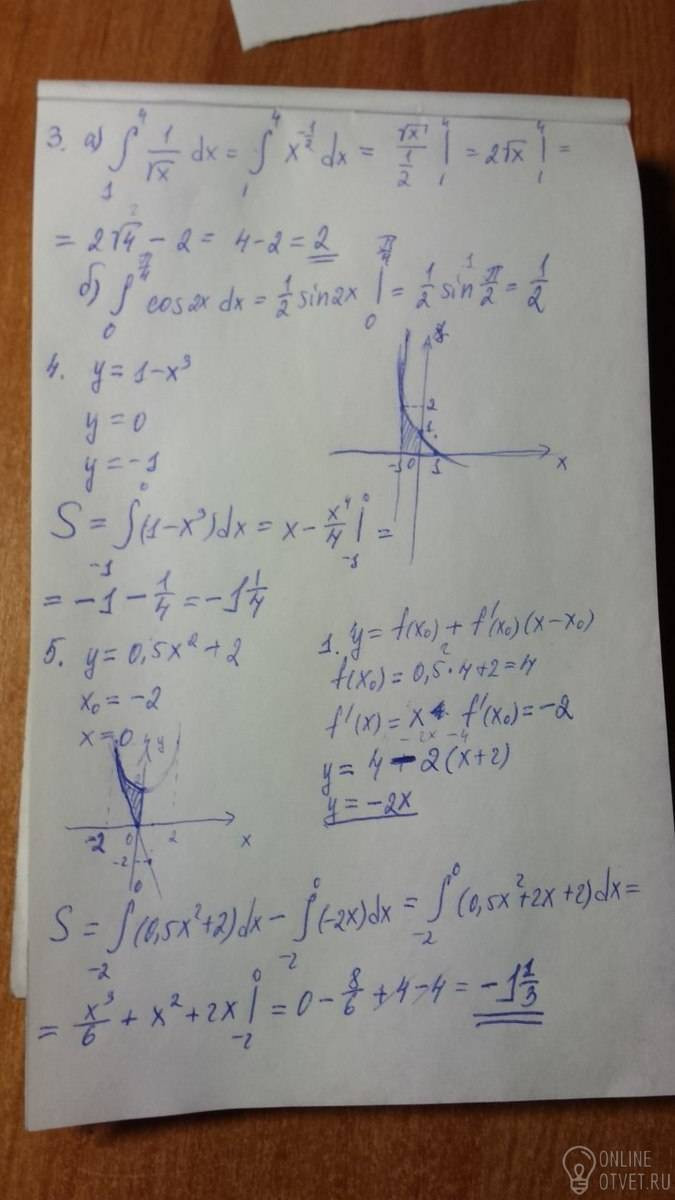 3. а) ∫₁⁴ 1/√x dx = ∫₁⁴ x^(-1/2) dx = √x / (1/2) |₁⁴ = 2√x |₁⁴ =
= 2√4 - 2 = 4 - 2 = 2
б) ∫₀^(π/4) cos2x dx = 1/2 sin2x |₀^(π/4) = 1/2 sin π/2 = 1/2
4. y = 1 - x³
y = 0
y = -1
2
1
-1 0 1 x
S = ∫₋₁⁰ (1 - x³)dx = x - x⁴/4 |₋₁⁰ =
= -1 - 1/4 = -1 1/4
5. y = 0,5x² + 2
x₀ = -2
x = 0
1. y = f(x₀) + f'(x₀)(x - x₀)
f(x₀) = 0,5 · 4 + 2 = 4
f'(x) = x f'(x₀) = -2
-2x -4
y = 4 - 2(x + 2)
y = -2x
y
-2 0 2 x
-2
S = ∫₋₂⁰ (0,5x² + 2)dx - ∫₋₂⁰ (-2x)dx = ∫₋₂⁰ (0,5x² + 2x + 2)dx =
= x³/6 + x² + 2x |₋₂⁰ = 0 - 8/6 + 4 - 4 = -1 1/3
ONLINE
OTVET.RU